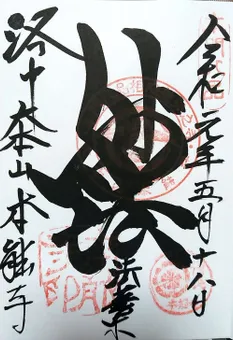 令和元年五月十八日
妙法
法華宗
洛中大本山本能寺